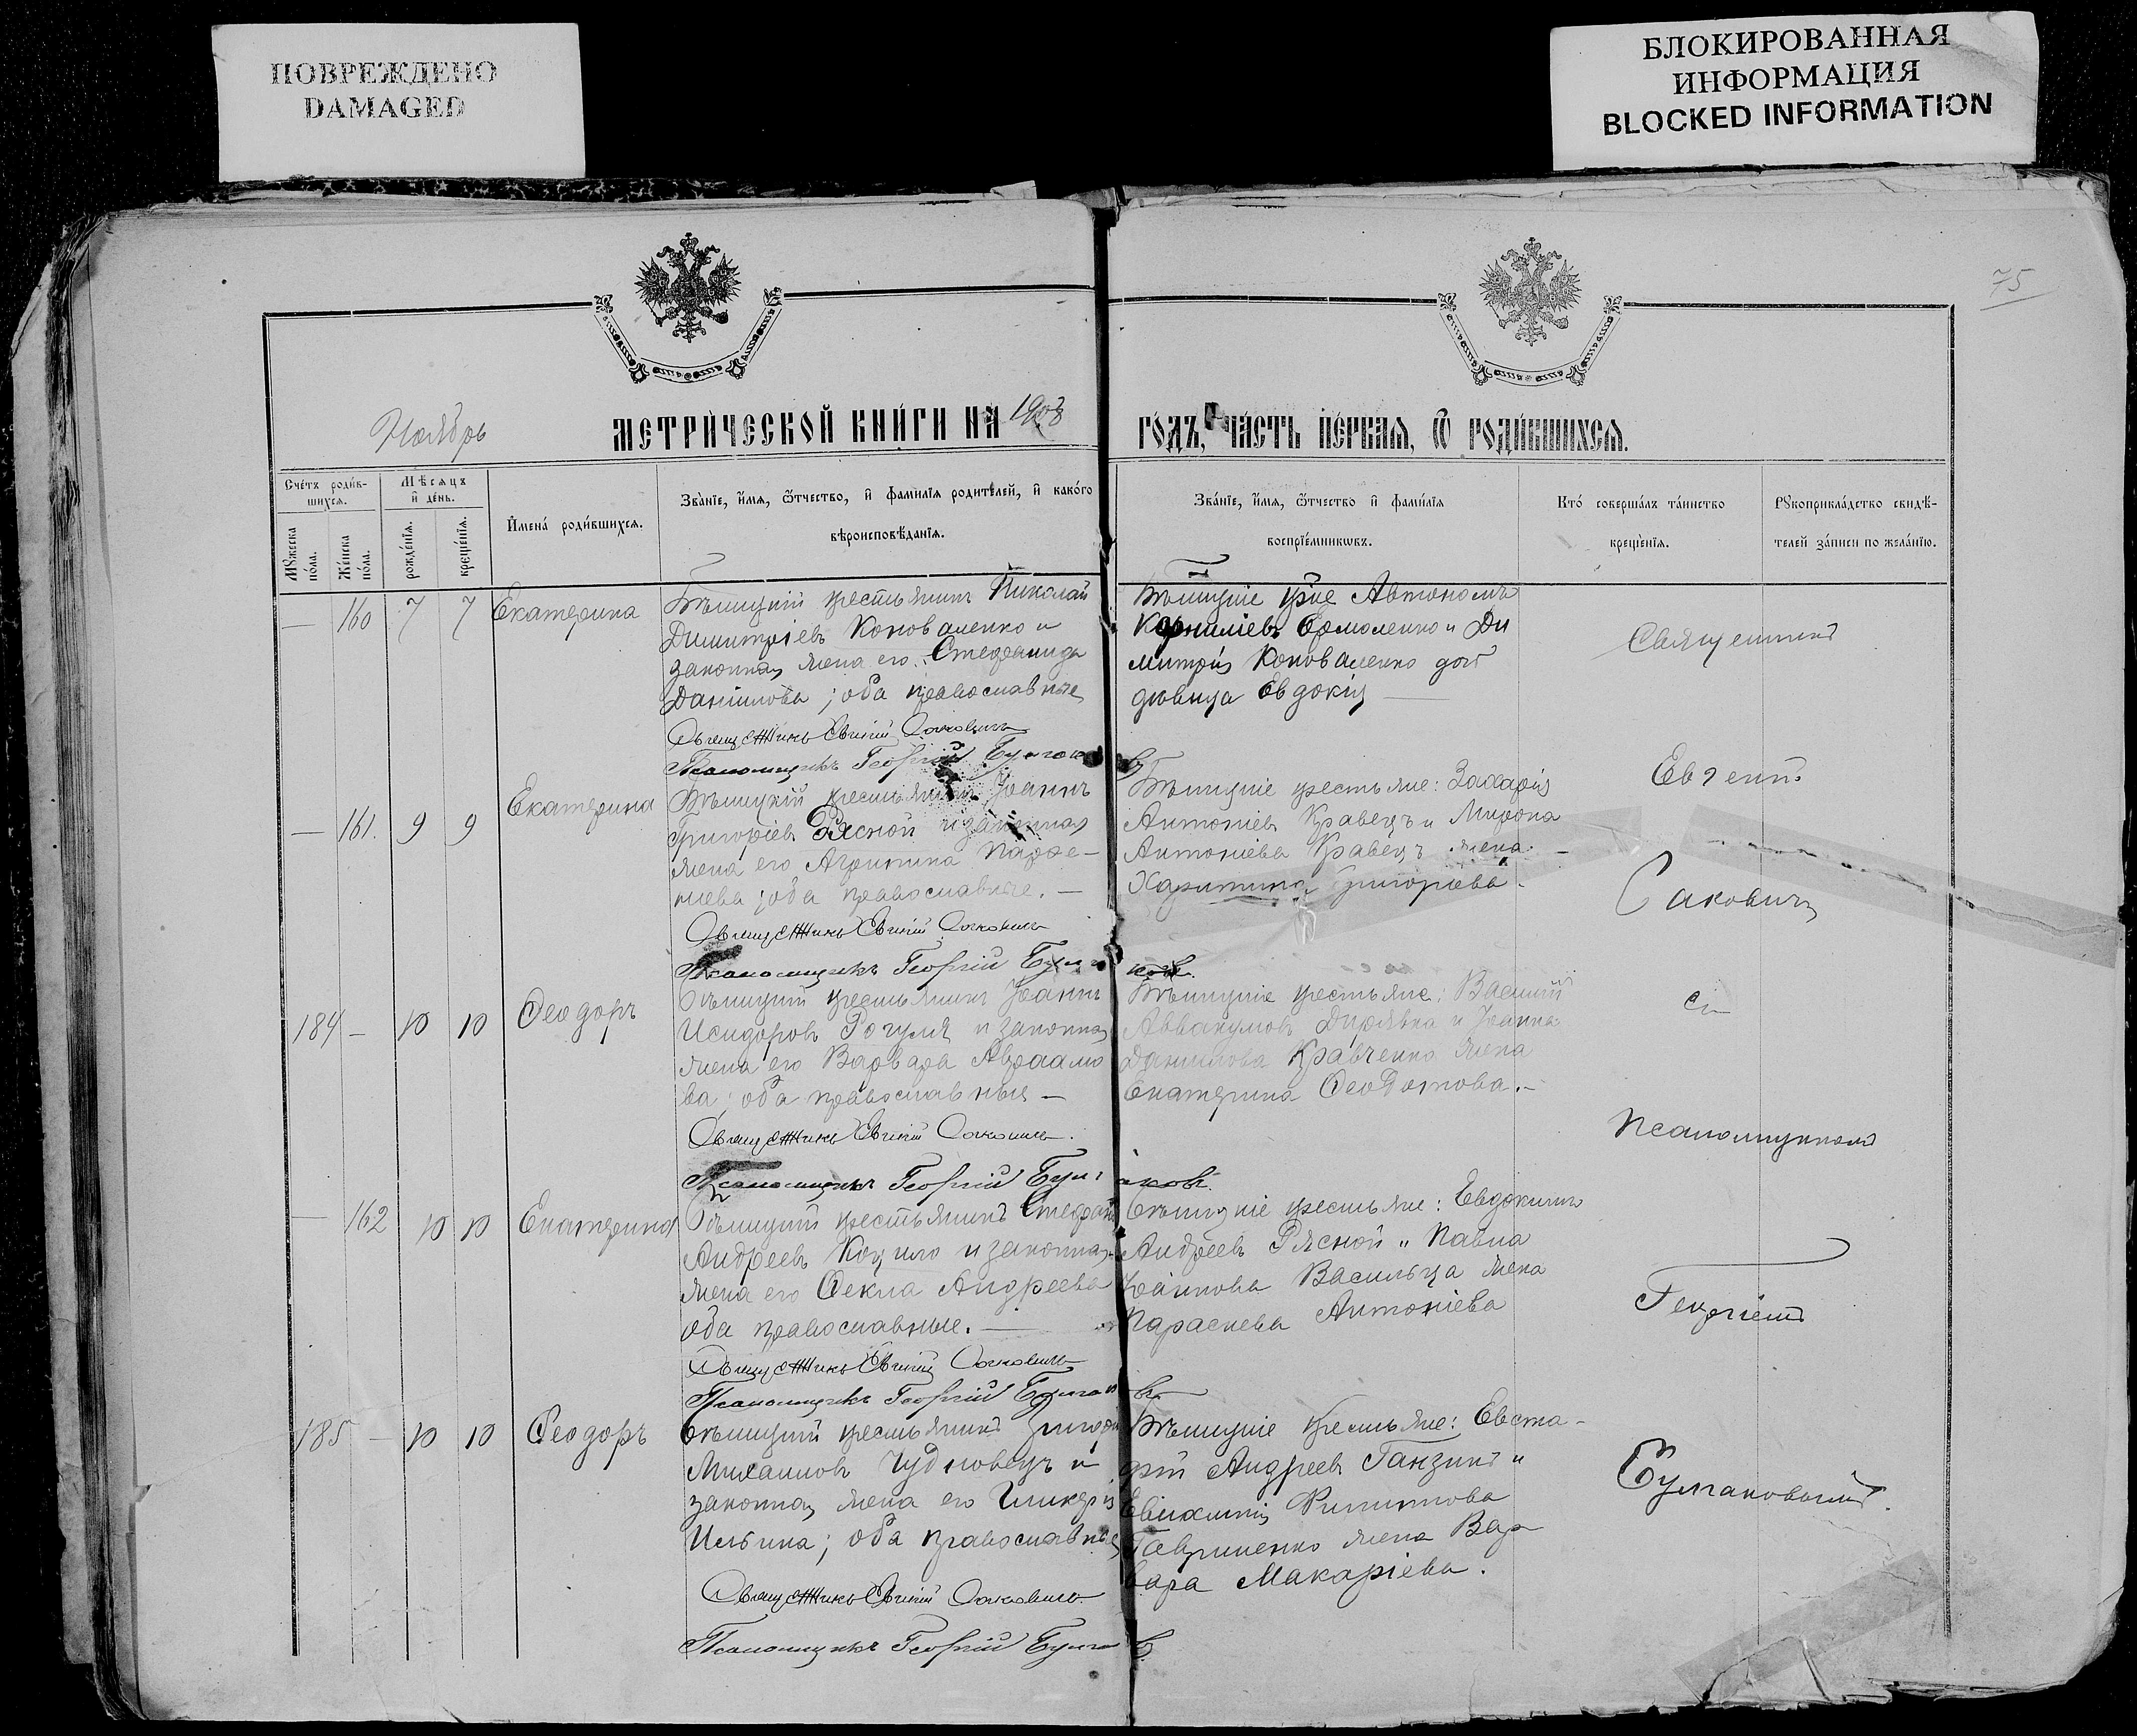 ПОВРЕЖДЕНО
DAMAGED
БЛОКИРОВАННАЯ
ИНФОРМАЦИЯ
BLOCKED INFORMATION
75
Ноябрь
МЕТРИЧЕСКОЙ КНИГИ НА 1908
ГОДЪ, ЧАСТЬ ПЕРВАЯ, Ѿ РОДИВШИХСЯ.
Счетъ родив-
шихся.
Мѣсяцъ
и день.
Мужеска
пола.
Женска
пола.
рожденія.
крещенія.
Имена родившихся.
Званіе, имя, ѿтчество, и фамилія родителей, и какого
вѣроисповѣданія.
Званіе, имя, ѿтчество и фамилія
воспріемниковъ.
Кто совершалъ таинство
крещенія.
Рукоприкладство свидѣ-
телей записи по желанію.
— 160 7 7 Екатерина
крестьянинъ Николай
Димитріевъ Коноваленко и
законная жена его Стефанида
Даніилова; оба православные
Автономъ
Корниліевъ Ермоленко и Ди
митрія Коноваленко дочь
дѣвица Евдокія
Священникъ Евгеній Саковичъ
Псаломщикъ Георгій
— 161. 9 9 Екатерина
крестьянинъ Іоаннъ
Григоріевъ Рясной и законная
жена его Агрипина Парфе-
ніева; оба православные. —
крестьяне: Захарія
Антоніевъ Кравецъ и Мирона
Антоніева Кравецъ жена
Харитина Григоріева.
Священникъ Евгеній Саковичъ
Псаломщикъ Георгій
184 — 10 10 Ѳеодоръ
крестьянинъ Іоаннъ
Исидоровъ Рогуля и законная
жена его Варвара Авраамо
ва; оба православные —
крестьяне: Василій
Аввакумовъ и Іоанна
Данилова Кравченко жена
Екатерина Ѳеодотова. —
Священникъ Евгеній Саковичъ.
Псаломщикъ Георгій
— 162 10 10 Екатерина
крестьянинъ Стефанъ
Андреевъ и законная
жена его Ѳекла Андреева
оба православные. —
крестьяне: Евдокимъ
Андреевъ Рясной и Павла
Іоаннова Васильца жена
Параскева Антоніева
Священникъ Евгеній Саковичъ
Псаломщикъ Георгій
185 — 10 10 Ѳеодоръ
крестьянинъ
Михаиловъ Чудновецъ и
законная жена его Гликерія
Ильина; оба православные
крестьяне: Евста-
фій Андреевъ Ганзинъ и
Филиппова
Гавриленко жена Вар
вара Макаріева.
Священникъ Евгеній Саковичъ
Псаломщикъ Георгій
Священникъ
Евгеній
Саковичъ
съ
Псаломщикомъ
Георгіемъ